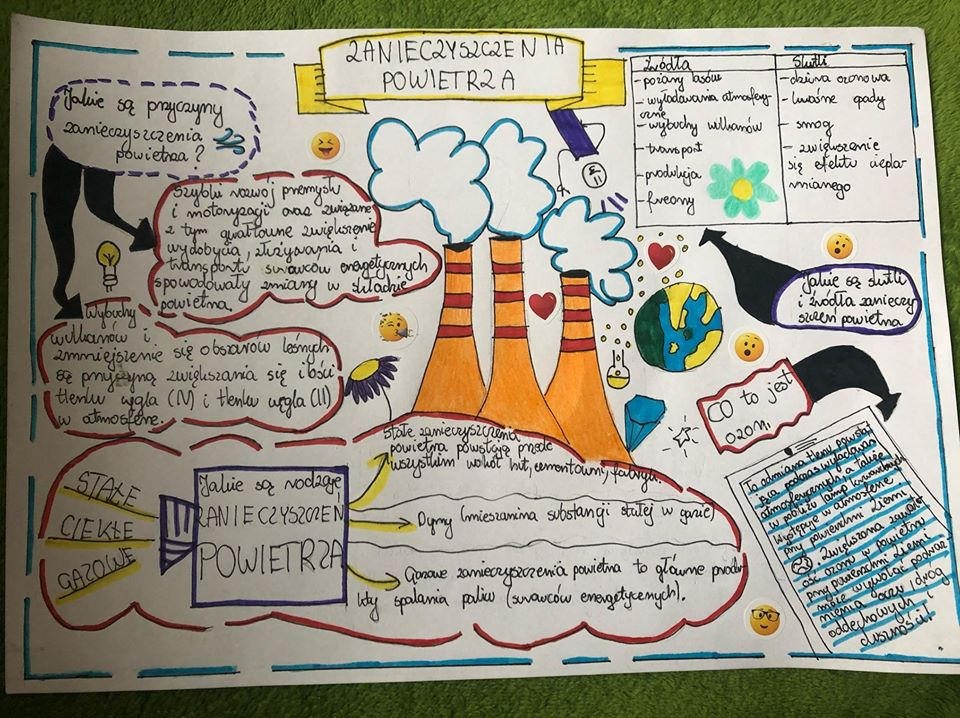 ZANIECZYSZCZENIA
POWIETRZA
Jakie są przyczyny
zanieczyszczenia
powietrza?
Szybki rozwój przemysłu
i motoryzacji oraz związane
z tym gwałtowne zwiększenie
wydobycia, zużywania i
transportu surowców energetycznych
spowodowały zmiany w składzie
powietrza.
Wybuchy
wulkanów i
zmniejszenie się obszarów leśnych
są przyczyną zwiększania się ilości
tlenku węgla (IV) i tlenku węgla (II)
w atmosferze.
Źródła
- pożary lasów
- wyładowania atmosfery-
czne
- wybuchy wulkanów
- transport
- produkcja
- freony
Skutki
- dziura ozonowa
- kwaśne opady
- smog
- zwiększanie
się efektu ciepla-
rnianego
Jakie są skutki
i źródła zanieczy
szczeń powietrza
CO to jest
ozon?
Ta odmiana tlenu powsta
jąca podczas wyładowań
atmosferycznych, a także
w pobliżu lamp kwarcowych
Występuje w atmosferze
przy powierzchni Ziemi
. Zwiększona zawart
ość ozonu w powietrzu
przy powierzchni Ziemi
może wywołać podraż
nienia oczu i dróg
oddechowych i
duszności!
STAŁE
CIEKŁE
GAZOWE
Jakie są rodzaje
ZANIECZYSZCZEŃ
POWIETRZA
Stałe zanieczyszczenia
powietrza powstają przede
wszystkim wokół hut, cementowni, fabryk.
Dymy (mieszanina substancji stałej w gazie)
Gazowe zanieczyszczenia powietrza to główne produ
kty spalania paliw (surowców energetycznych).